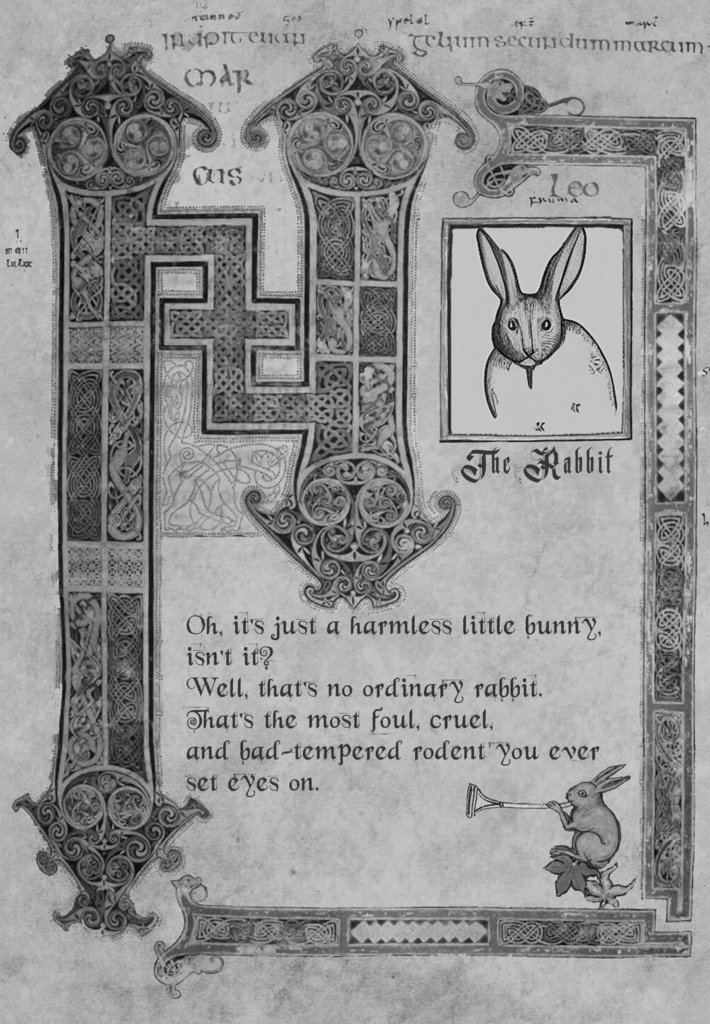 INCIPIT EUAN
GELIUM SECUNDUM MARCUM
MAR
CUS
LEO
The Rabbit
Oh, it's just a harmless little bunny,
isn't it?
Well, that's no ordinary rabbit.
That's the most foul, cruel,
and bad-tempered rodent you ever
set eyes on.